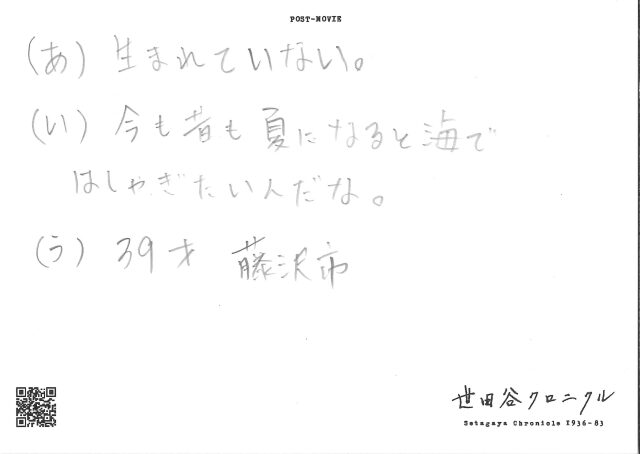 POST-MOVIE
(あ) 生まれていない。
(い) 今も昔も夏になると海で
はしゃぎたいんだな。
(う) 39才 藤沢市
世田谷クロニクル
Setagaya Chronicle 1936-83